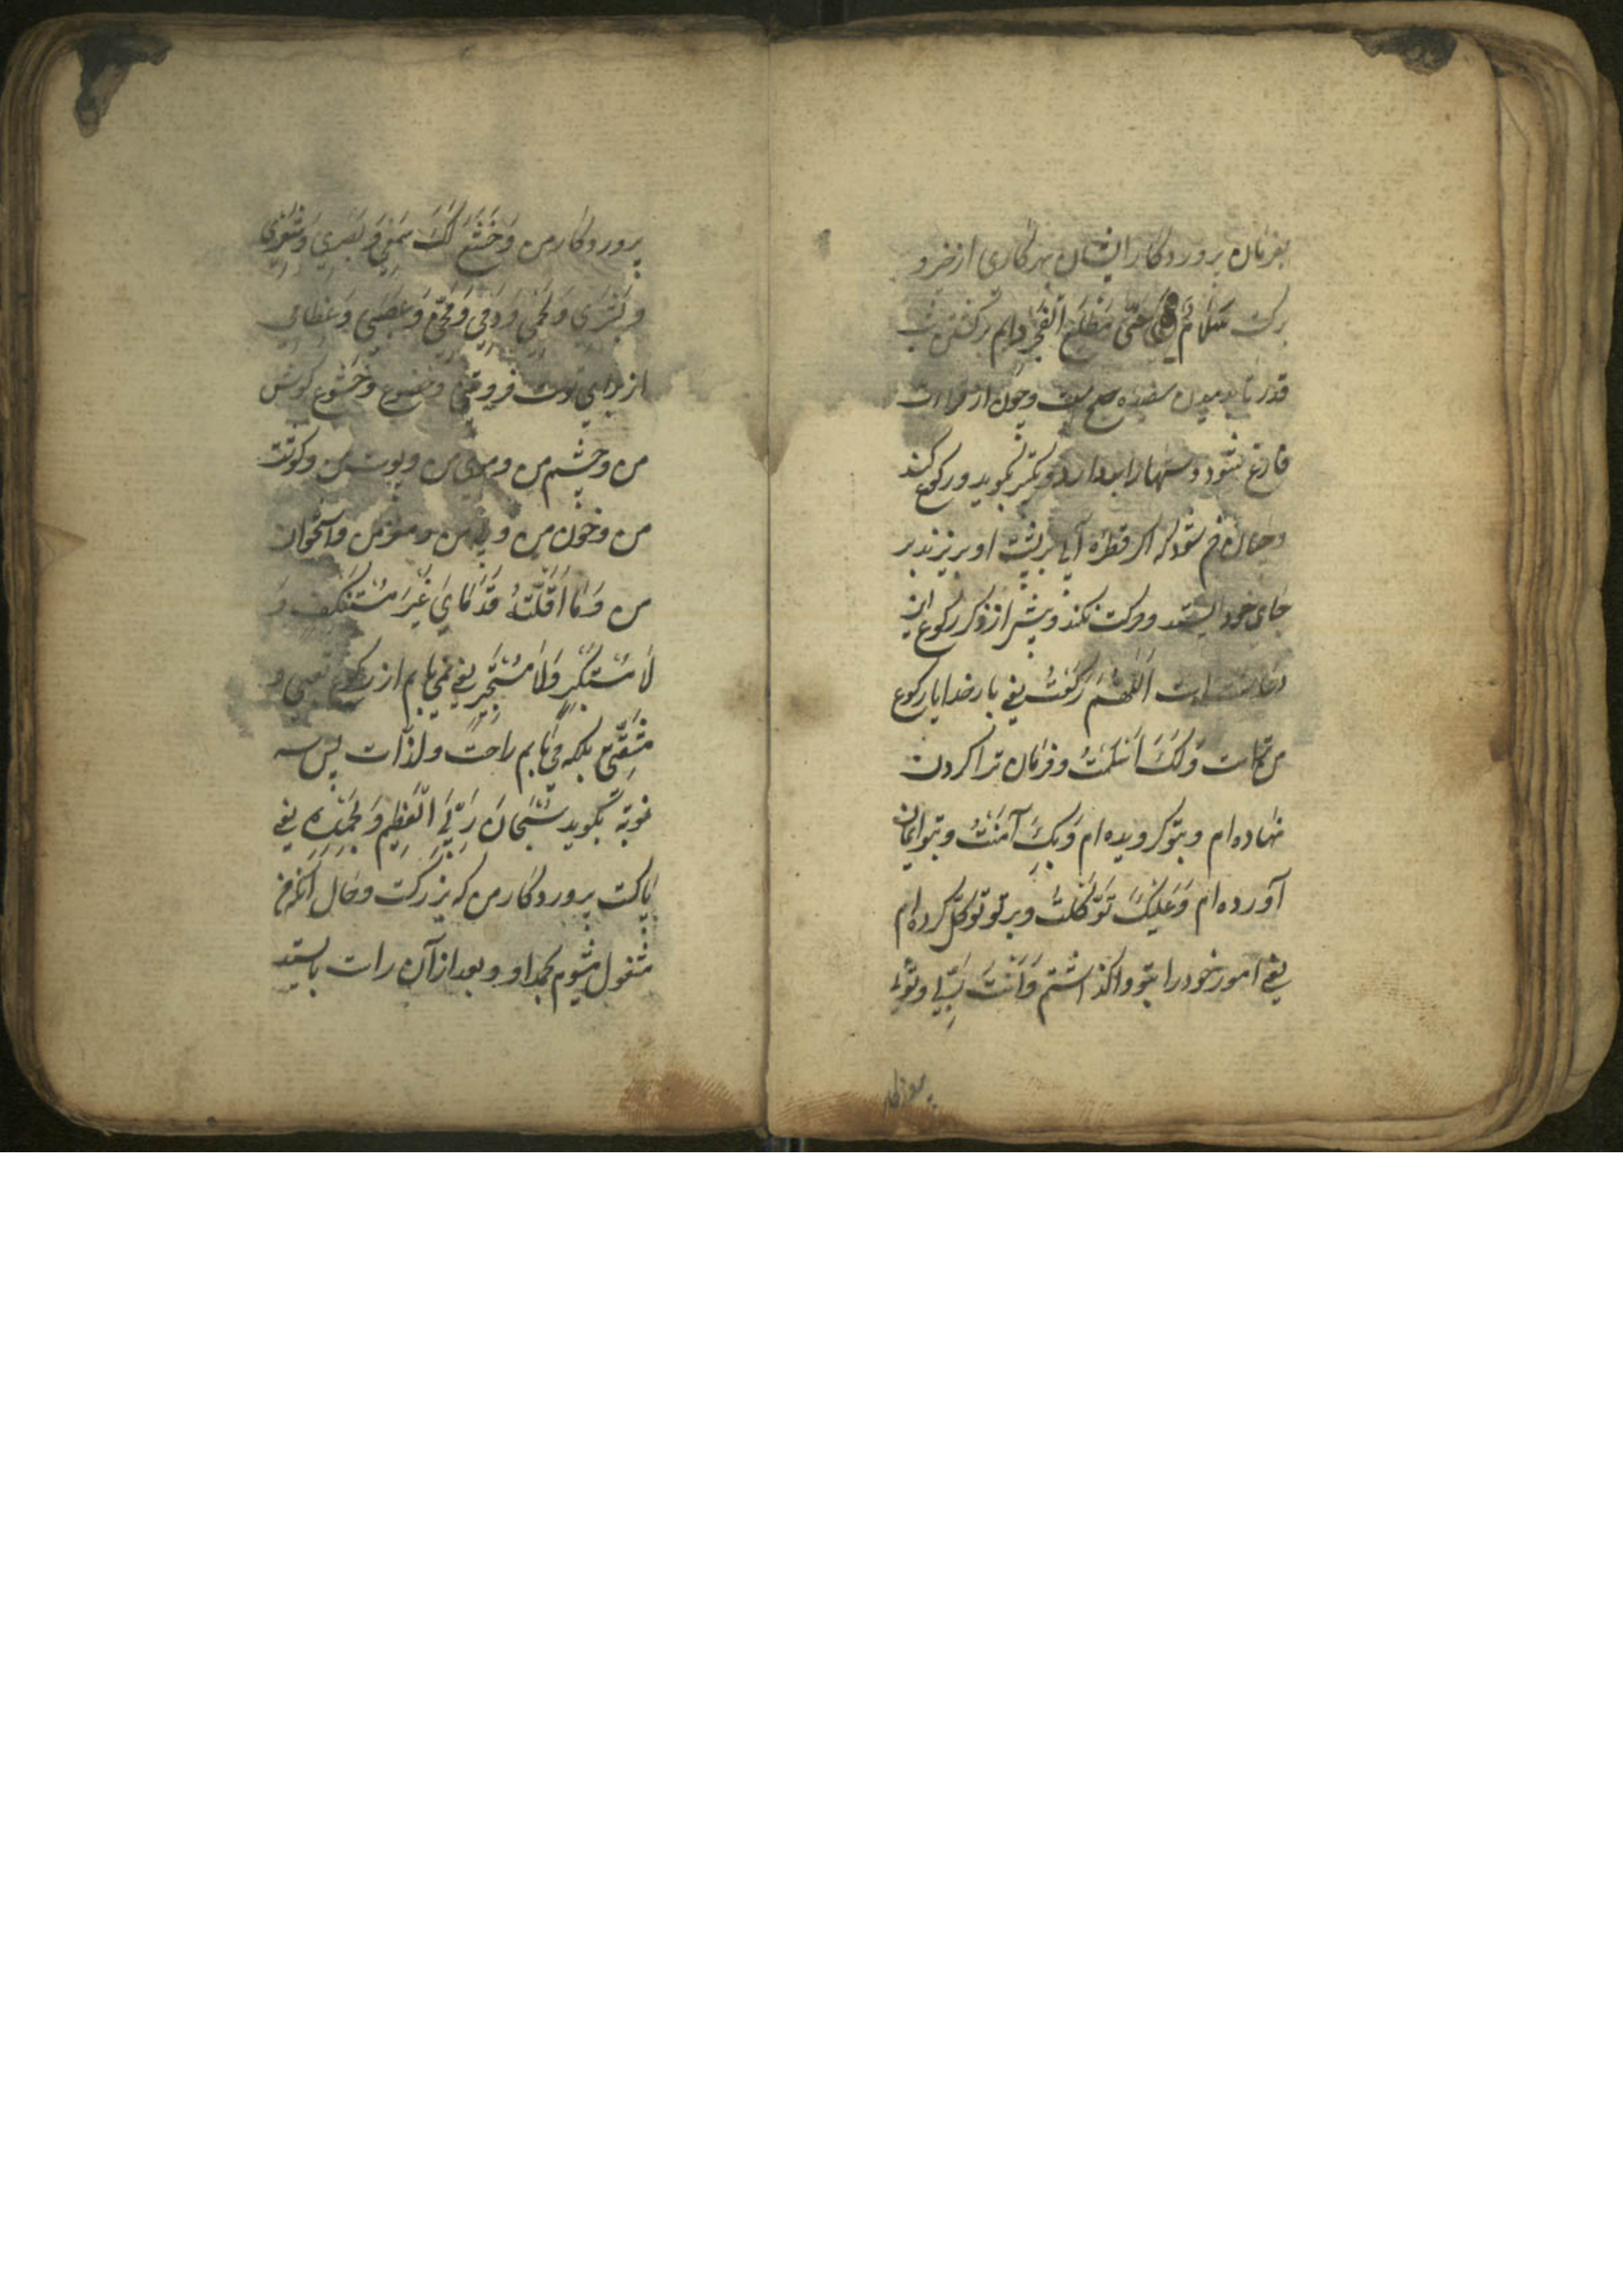 بفرمان پروردکار ایشان بهر کاری از خیر و
برکت سَلَامٌ هِیَ حَتّٰی مَطْلَعِ الْفَجْرِ دایم برکتش شب
قدر تا بدمیدن سفیده صبح است و چون از قراات
فارغ شود دستها را بردارد و تکبیر بکوید و رکوع کند
و چنان خم شود که اکر قطره آبی بر پشت او بریزند بر
جای خود ایستد و حرکت نکند و پیش از ذکر رکوع این
دعا سنت است اَللّٰهُمَّ رَکَعْتُ یعنی بار خدایا رکوع
من تراست وَلَکَ اَسْلَمْتُ و فرمان ترا کردن
نهاده ام و بتو کرویده ام وَبِکَ آمَنْتُ و بتو ایمان
آورده ام وَعَلَیْکَ تَوَکَّلْتُ و بر تو توکل کرده ام
یعنی امور خود را بتو واکذاشتم وَاَنْتَ رَبِّی و توئی
پروردکار
پروردکار من وَخَشَعَ لَکَ سَمْعِی وَبَصَرِی وَشَعْرِی
وَبَشَرِی وَلَحْمِی وَدَمِی وَمُخِّی وَعَصَبِی وَعِظَامِی
از برای تست فروتنی و خضوع و خشوع کوش
من و چشم من و موی من و پوست من و کوشت
من و خون من و پی من و مغز من و استخوان
من وَمَا اَقَلَّتْهُ قَدَمَایَ غَیْرَ مُسْتَنْکِفٍ وَ
لَا مُسْتَکْبِرٍ وَلَا مُسْتَحْسِرٍ یعنی نمی یابم از رکوع تعبی و
مشقتی بلکه می یابم راحت و لذات پس سه
نوبة بکوید سُبْحَانَ رَبِّیَ الْعَظِیمِ وَبِحَمْدِهِ یعنی
پاکست پروردکار من که بزرکست و حال آنکه من
مشغول میشوم بحمد او و بعد از آن راست بایستد